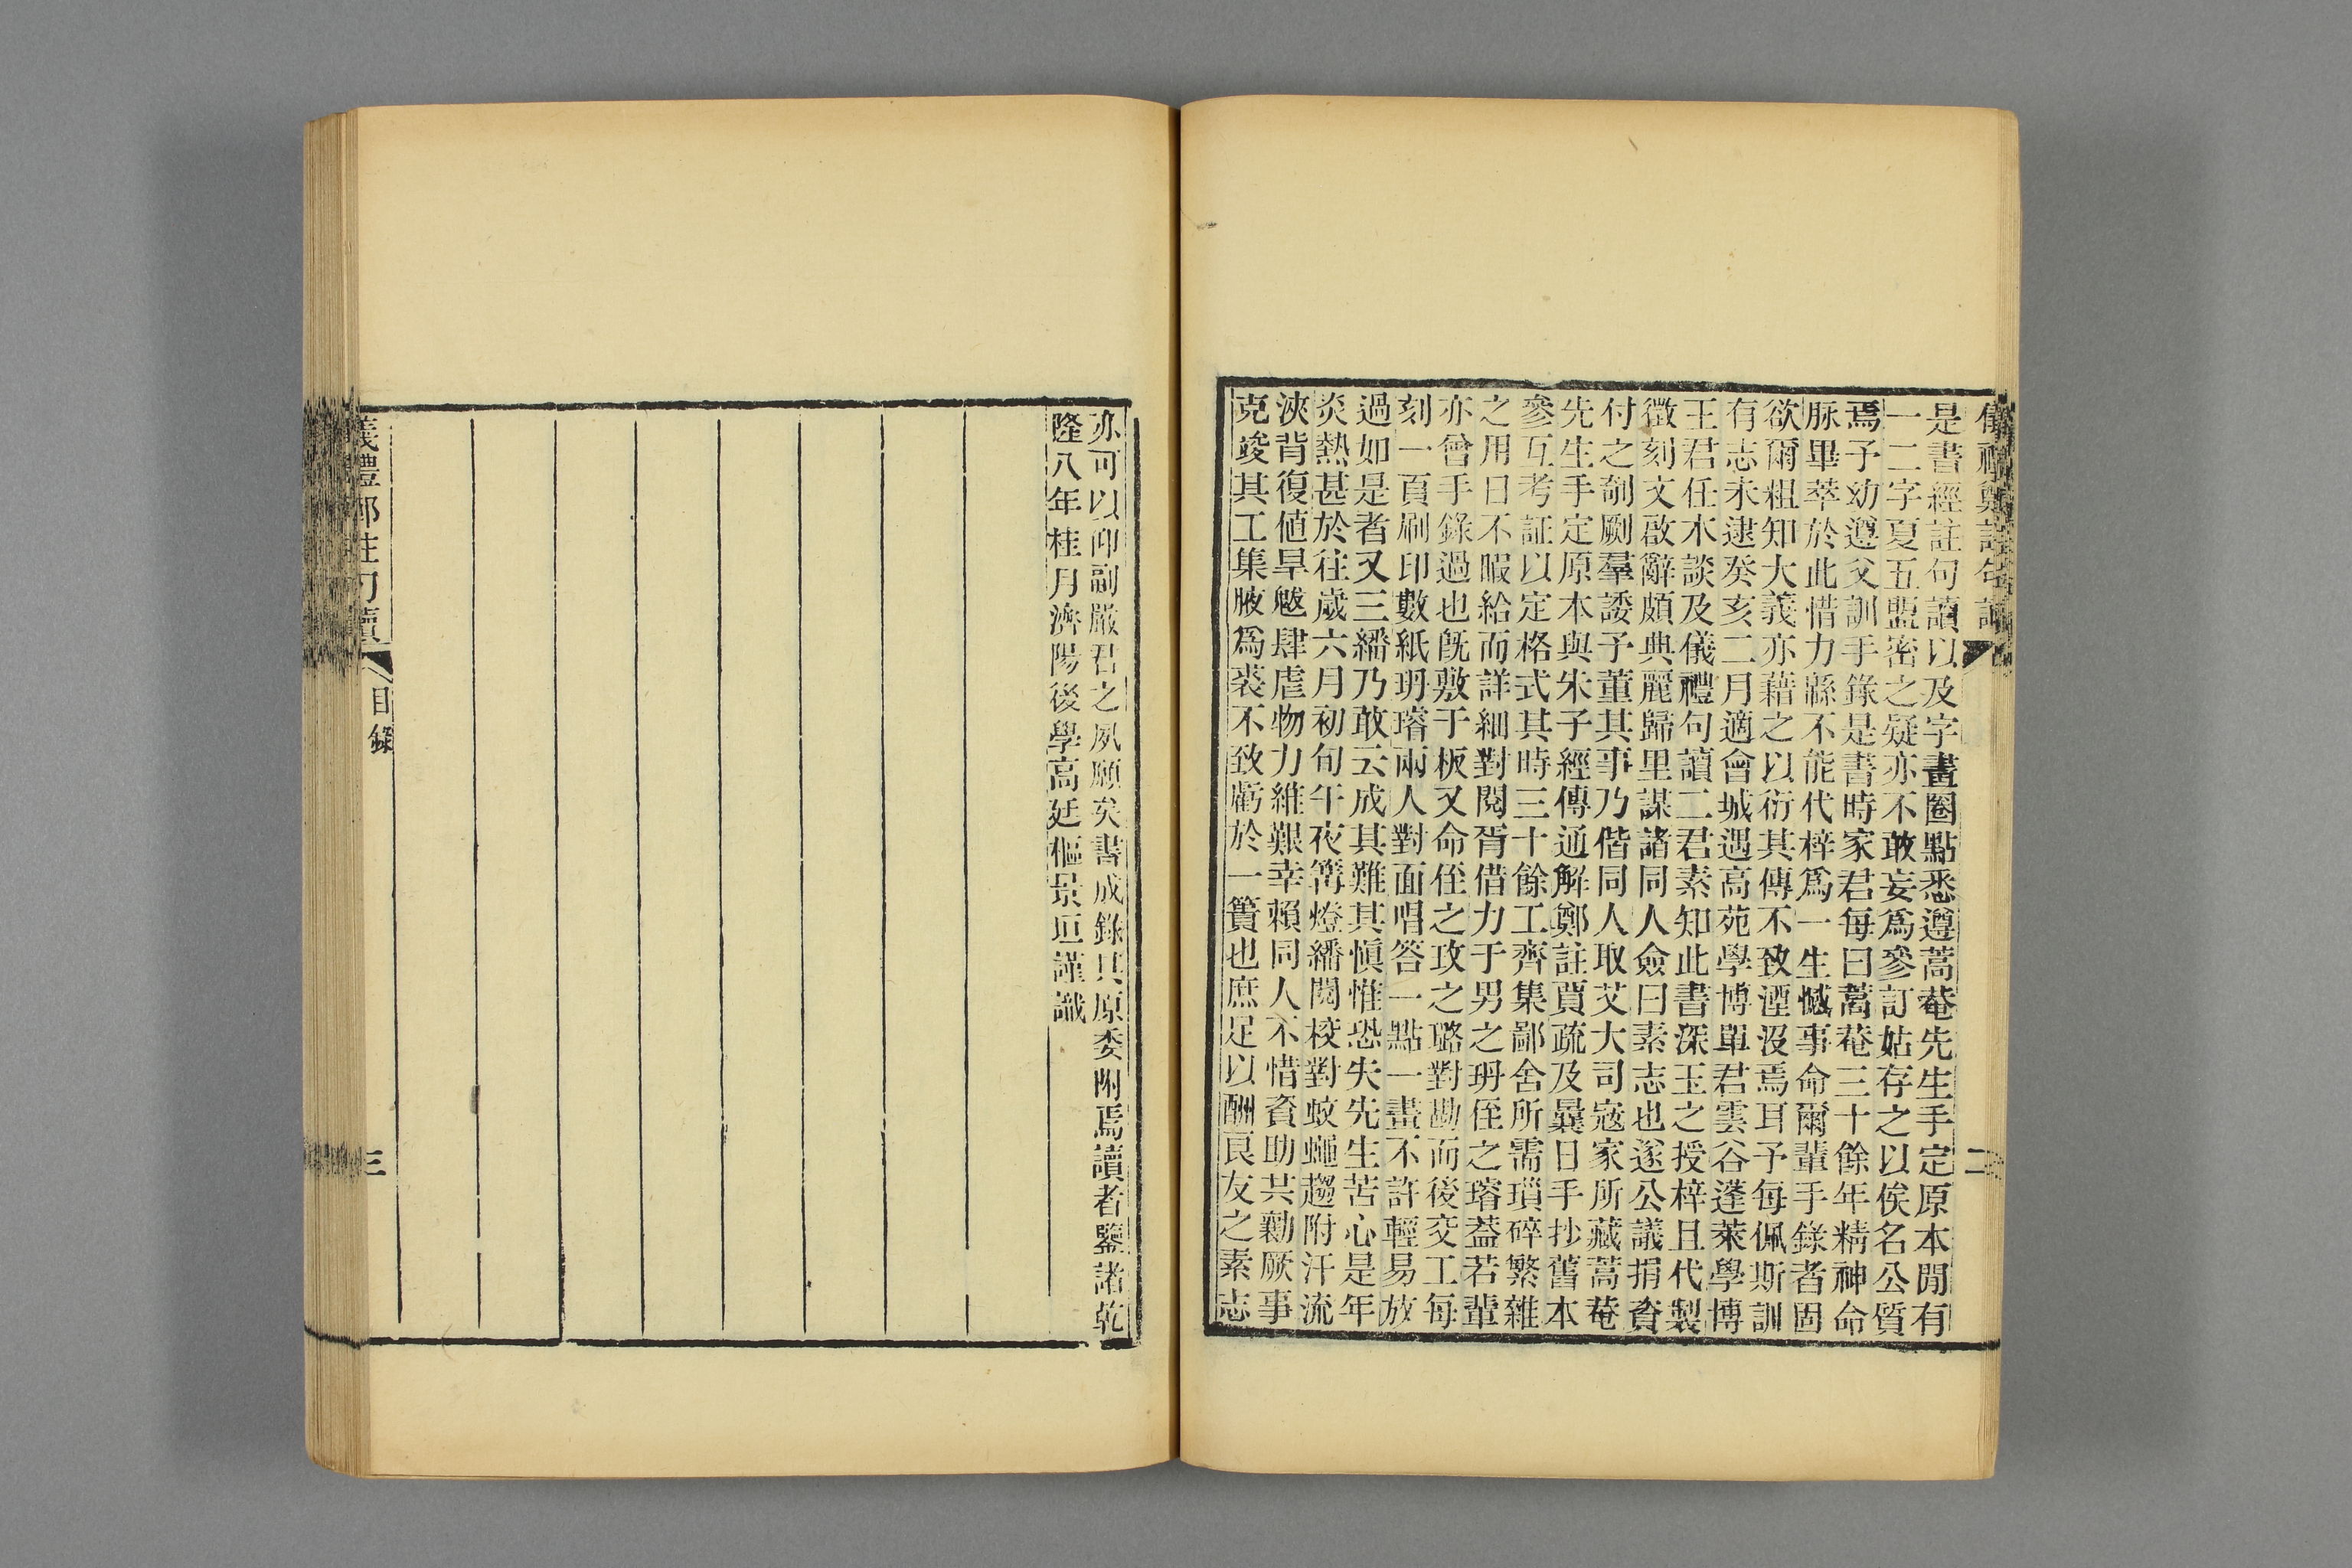 儀禮鄭註句讀
二
是書經註句讀以及字畫圈點悉遵蒿菴先生手定原本閒有
一二字夏五盟密之疑亦不敢妄爲參訂姑存之以俟名公質
焉予幼遵父訓手錄是書時家君每曰蒿菴三十餘年精神命
脉畢萃於此惜力緜不能代梓爲一生憾事命爾輩手錄者固
欲爾粗知大義亦藉之以衍其傳不致湮沒焉耳予每佩斯訓
有志未逮癸亥二月適會城遇高苑學博單君雲谷蓬萊學博
王君任木談及儀禮句讀二君素知此書深玉之授梓且代製
徵刻文啟辭頗典麗歸里謀諸同人僉曰素志也遂公議捐資
付之剞劂羣諉予董其事乃偕同人取艾大司寇家所藏蒿菴
先生手定原本與朱子經傳通解鄭註賈疏及曩日手抄舊本
參互考証以定格式其時三十餘工齊集鄙舍所需瑣碎繁雜
之用日不暇給而詳細對閱胥借力于男之玬侄之璿葢若輩
亦曾手錄過也旣敷于板又命侄之玫之璐對勘而後交工每
刻一頁刷印數紙玬璿兩人對面唱答一點一畫不許輕易放
過如是者又三繙乃敢云成其難其慎惟恐失先生苦心是年
炎熱甚於往歲六月初旬午夜篝燈繙閱校對蚊蠅趨附汗流
浹背復値旱魃肆虐物力維艱幸賴同人不惜資助共勷厥事
克竣其工集腋爲裘不致虧於一簣也庶足以酬良友之素志
亦可以仰副嚴君之夙願矣書成錄其原委附焉讀者鑒諸乾
隆八年桂月濟陽後學高廷樞景垣謹識
儀禮鄭註句讀
目錄
三